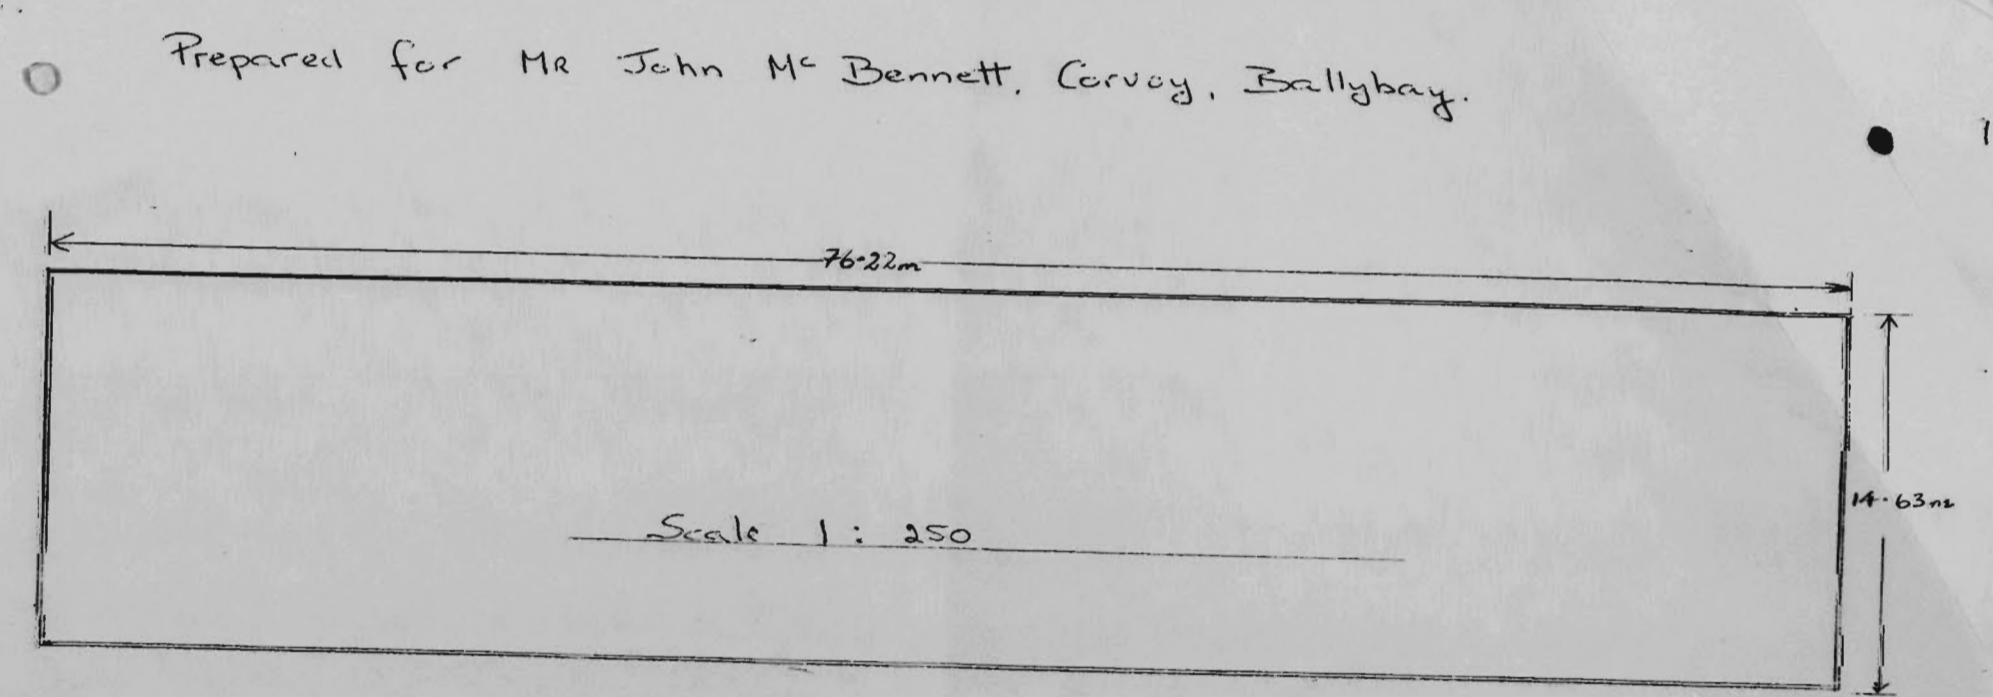 Prepared for MR John Mc Bennett, Corvoy, Ballybay.
76.22m
14.63m
Scale 1 : 250